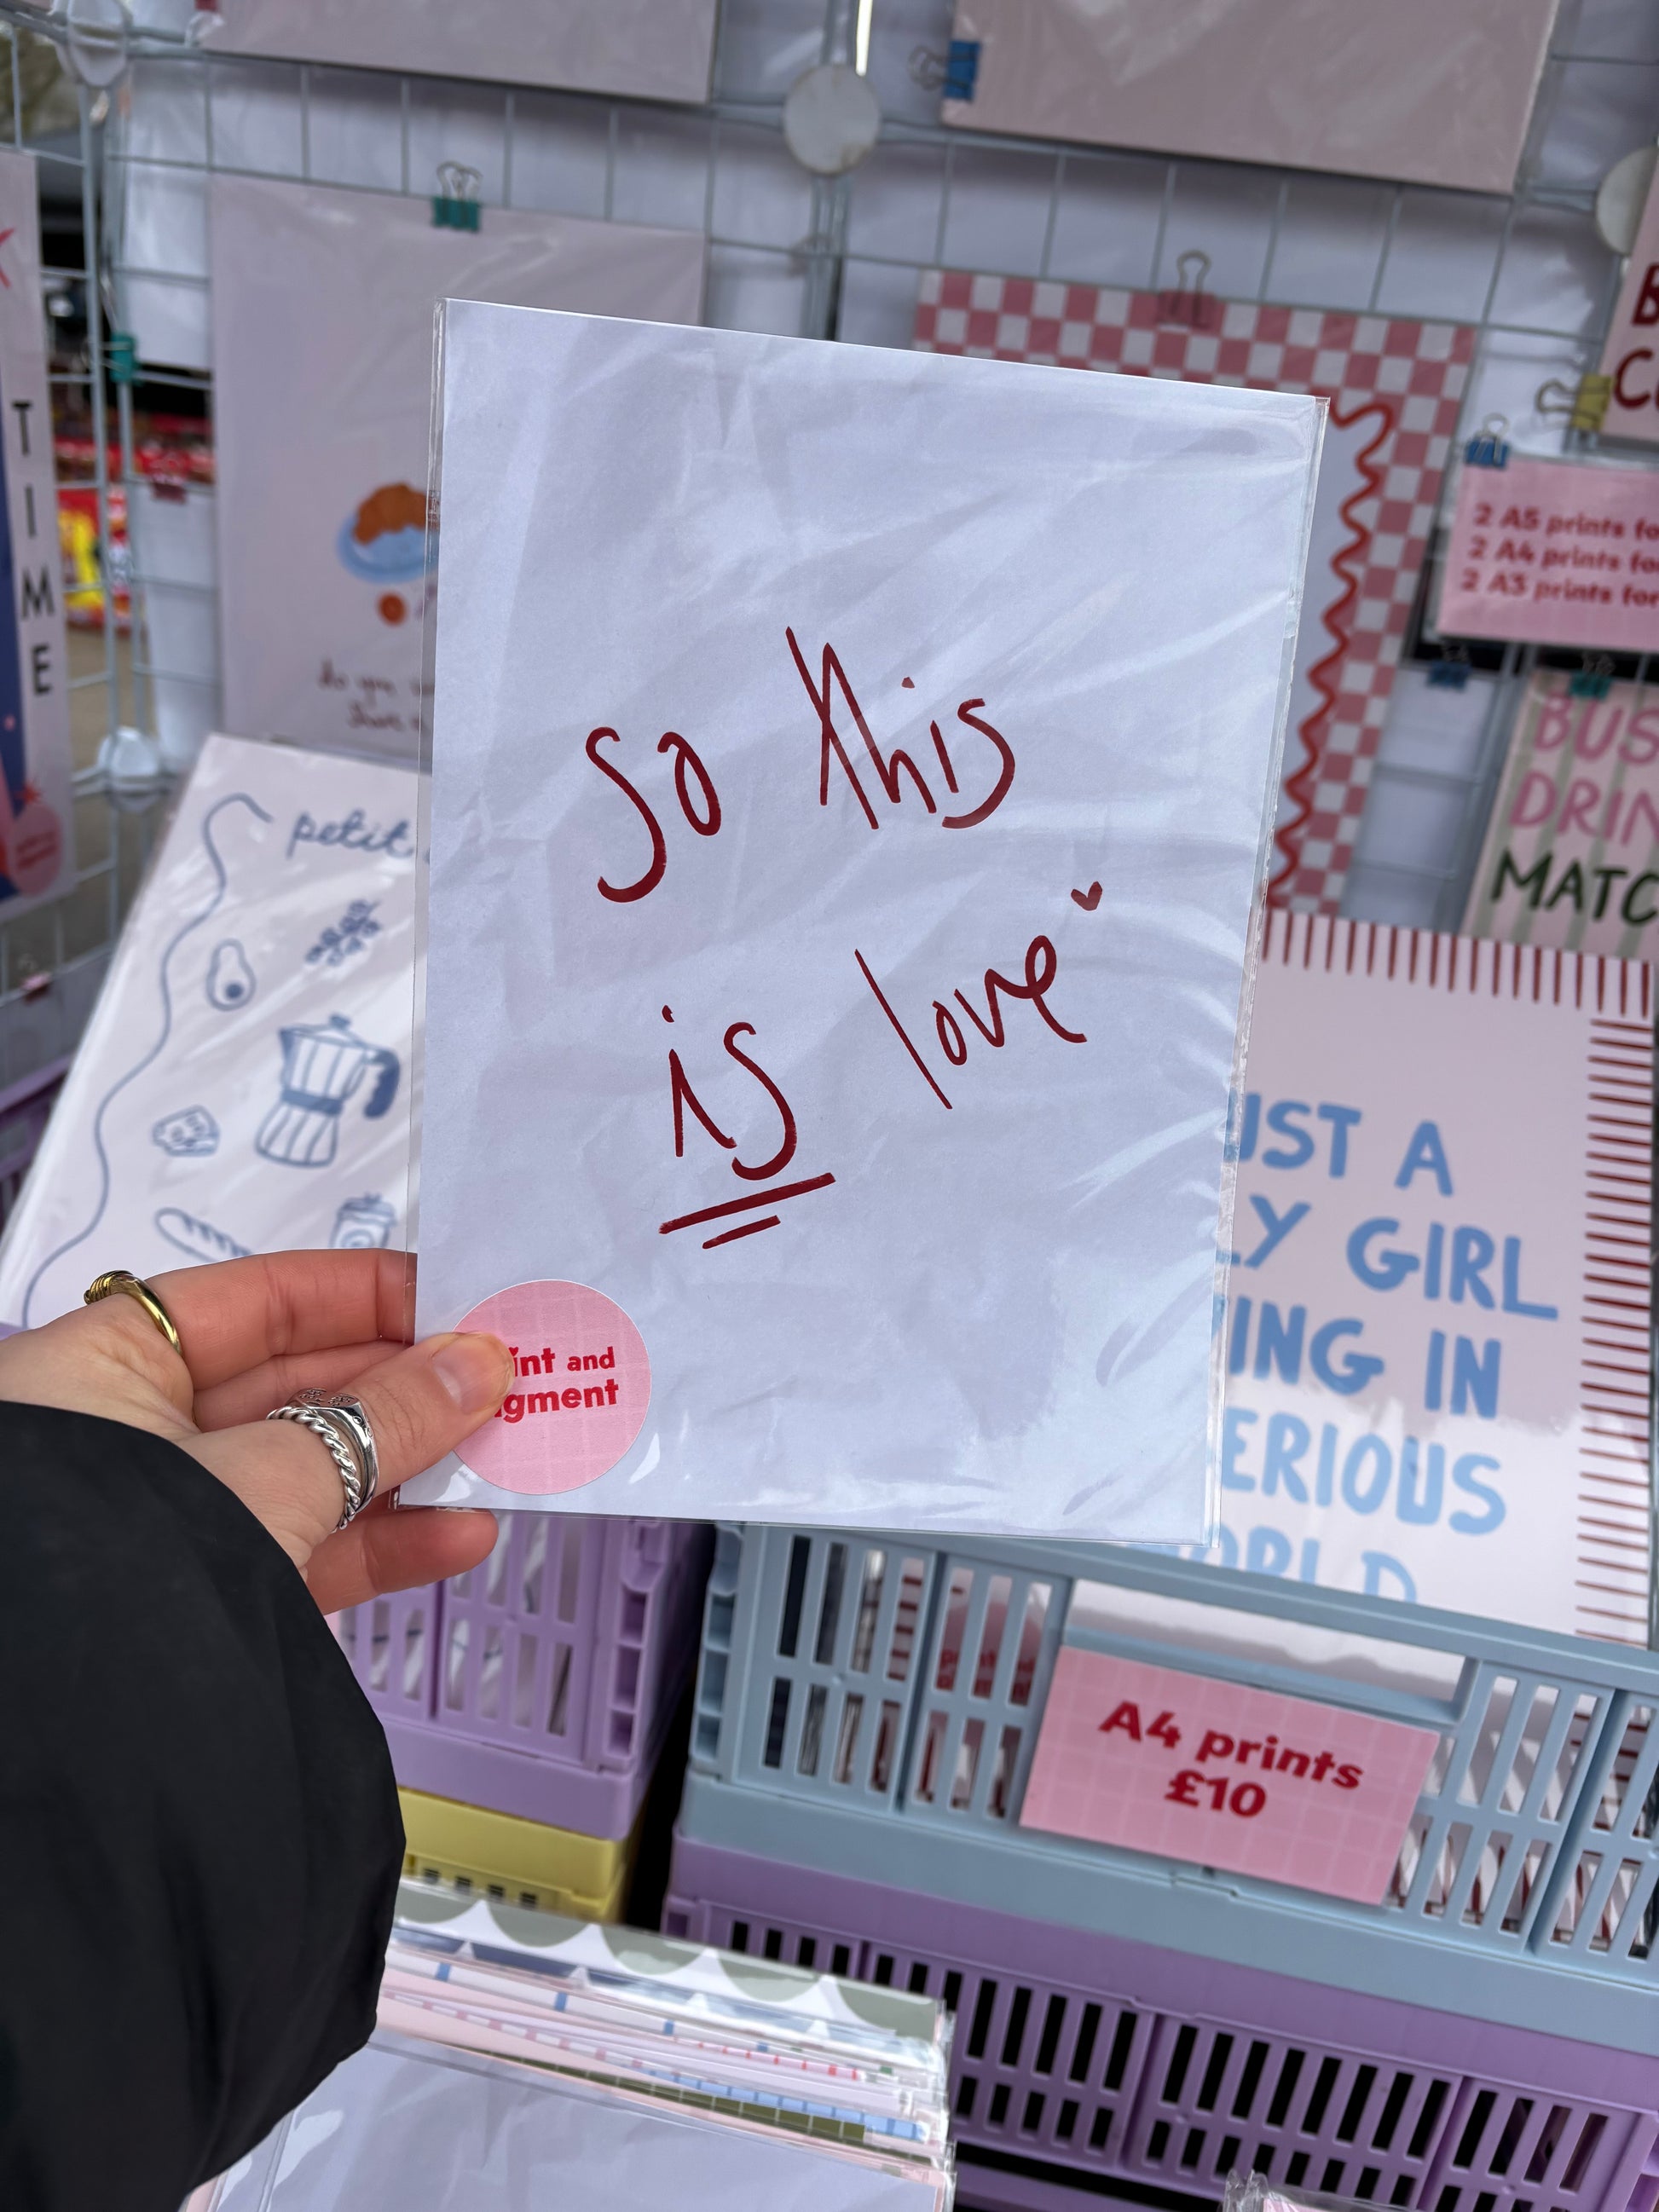 so this
is love
int and
gment
TIME
do you
petit
2 A5 prints fo
2 A4 prints fo
2 A3 prints for
BUS
DRIN
MATC
UST A
LY GIRL
ING IN
ERIOUS
ORLD
A4 prints
£10